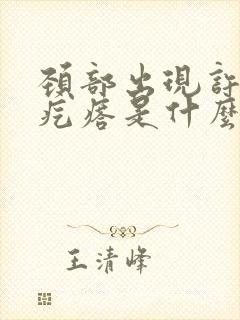 頸部出現許
疙瘩是什麼
王清峰